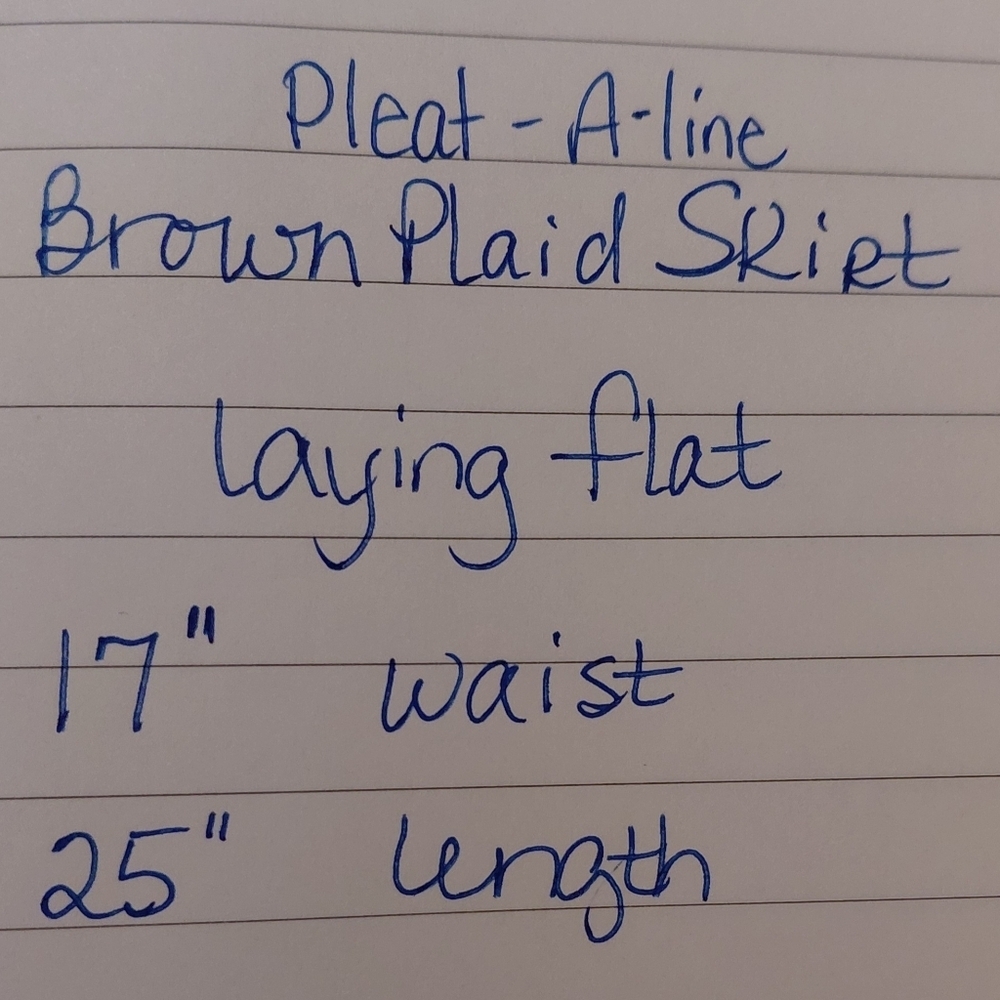 Pleat - A-line
Brown Plaid Skirt
laying flat
17" waist
25" length